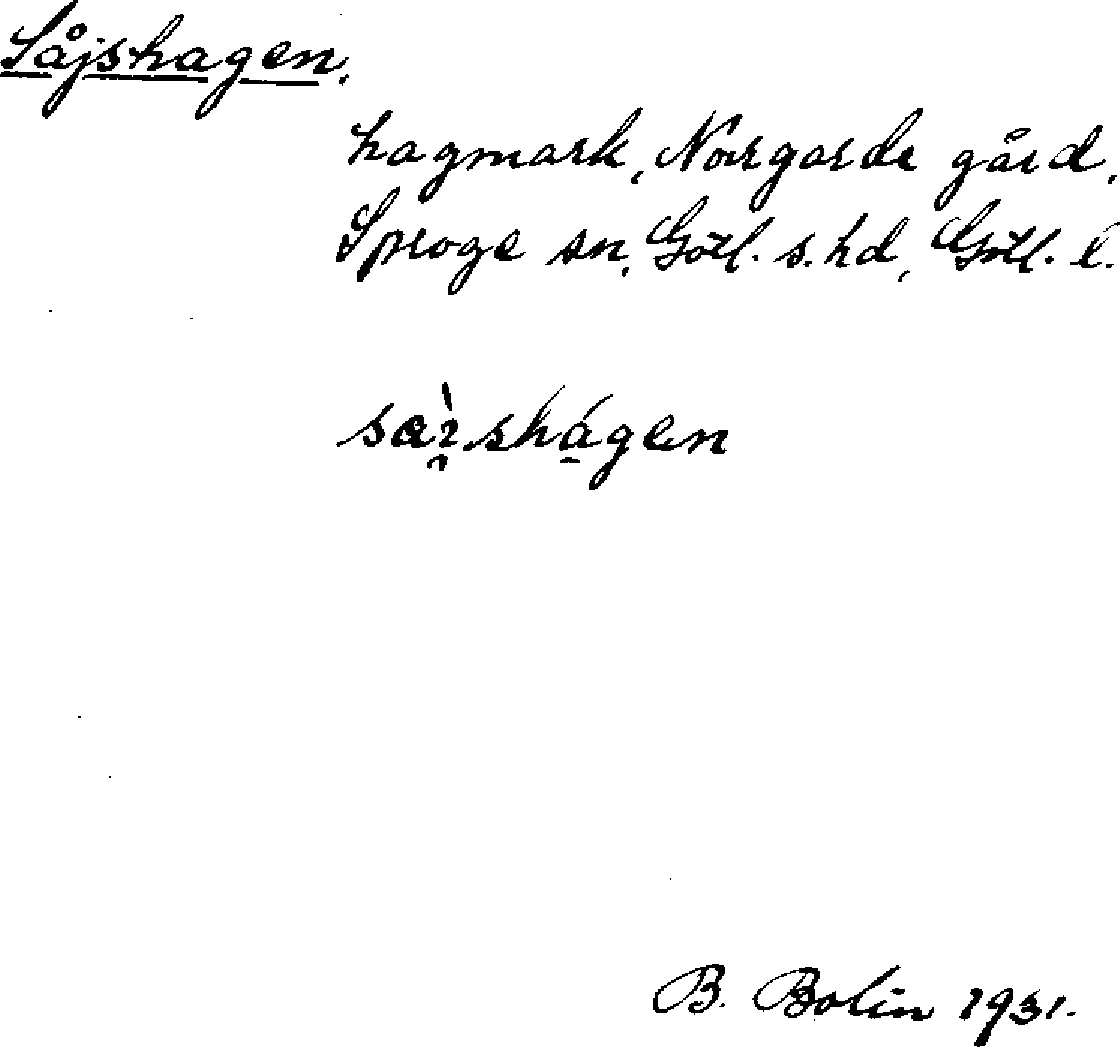 Såjshagen.
hagmark, Norrgarde gård,
Sproge sn, Gotl. s. hd, Gotl. l.
B. Bolin 1931.